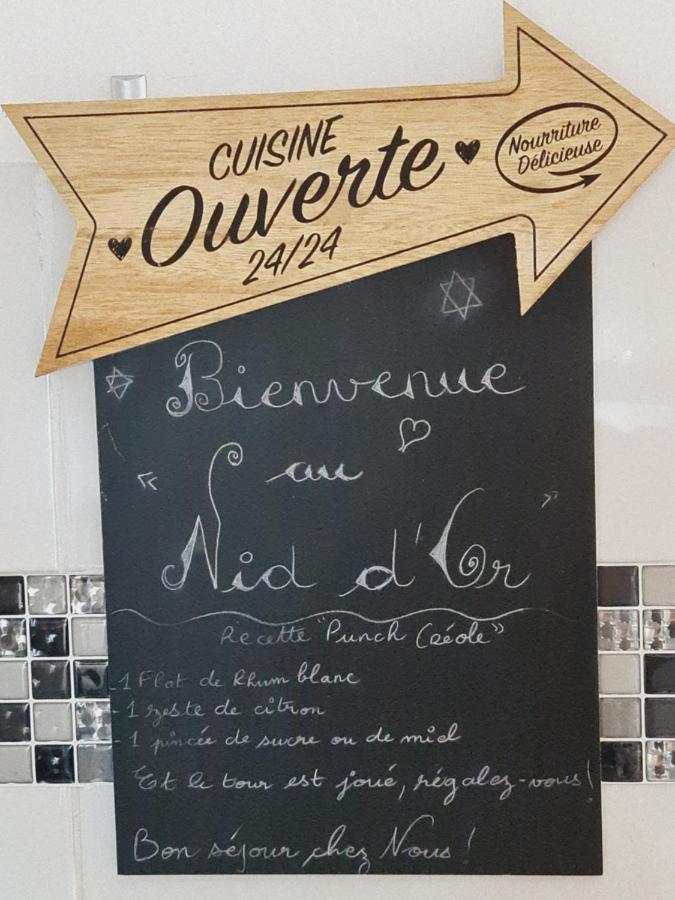 CUISINE
Ouverte
24/24
Nourriture
Délicieuse
Bienvenue
au
« Nid d'Or »
Recette "Punch Créole"
- 1 Flot de Rhum blanc
- 1 zeste de citron
- 1 pincée de sucre ou de miel
Et le tour est joué, régalez-vous!
Bon séjour chez Nous !